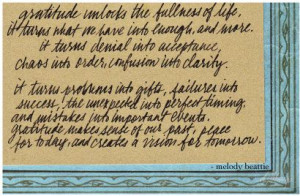 gratitude unlocks the fullness of life.
it turns what we have into enough, and more.
it turns denial into acceptance,
chaos into order, confusion into clarity.
it turns problems into gifts, failures into
success, the unexpected into perfect timing,
and mistakes into important events.
gratitude makes sense of our past, peace
for today, and creates a vision for tomorrow.
- melody beattie